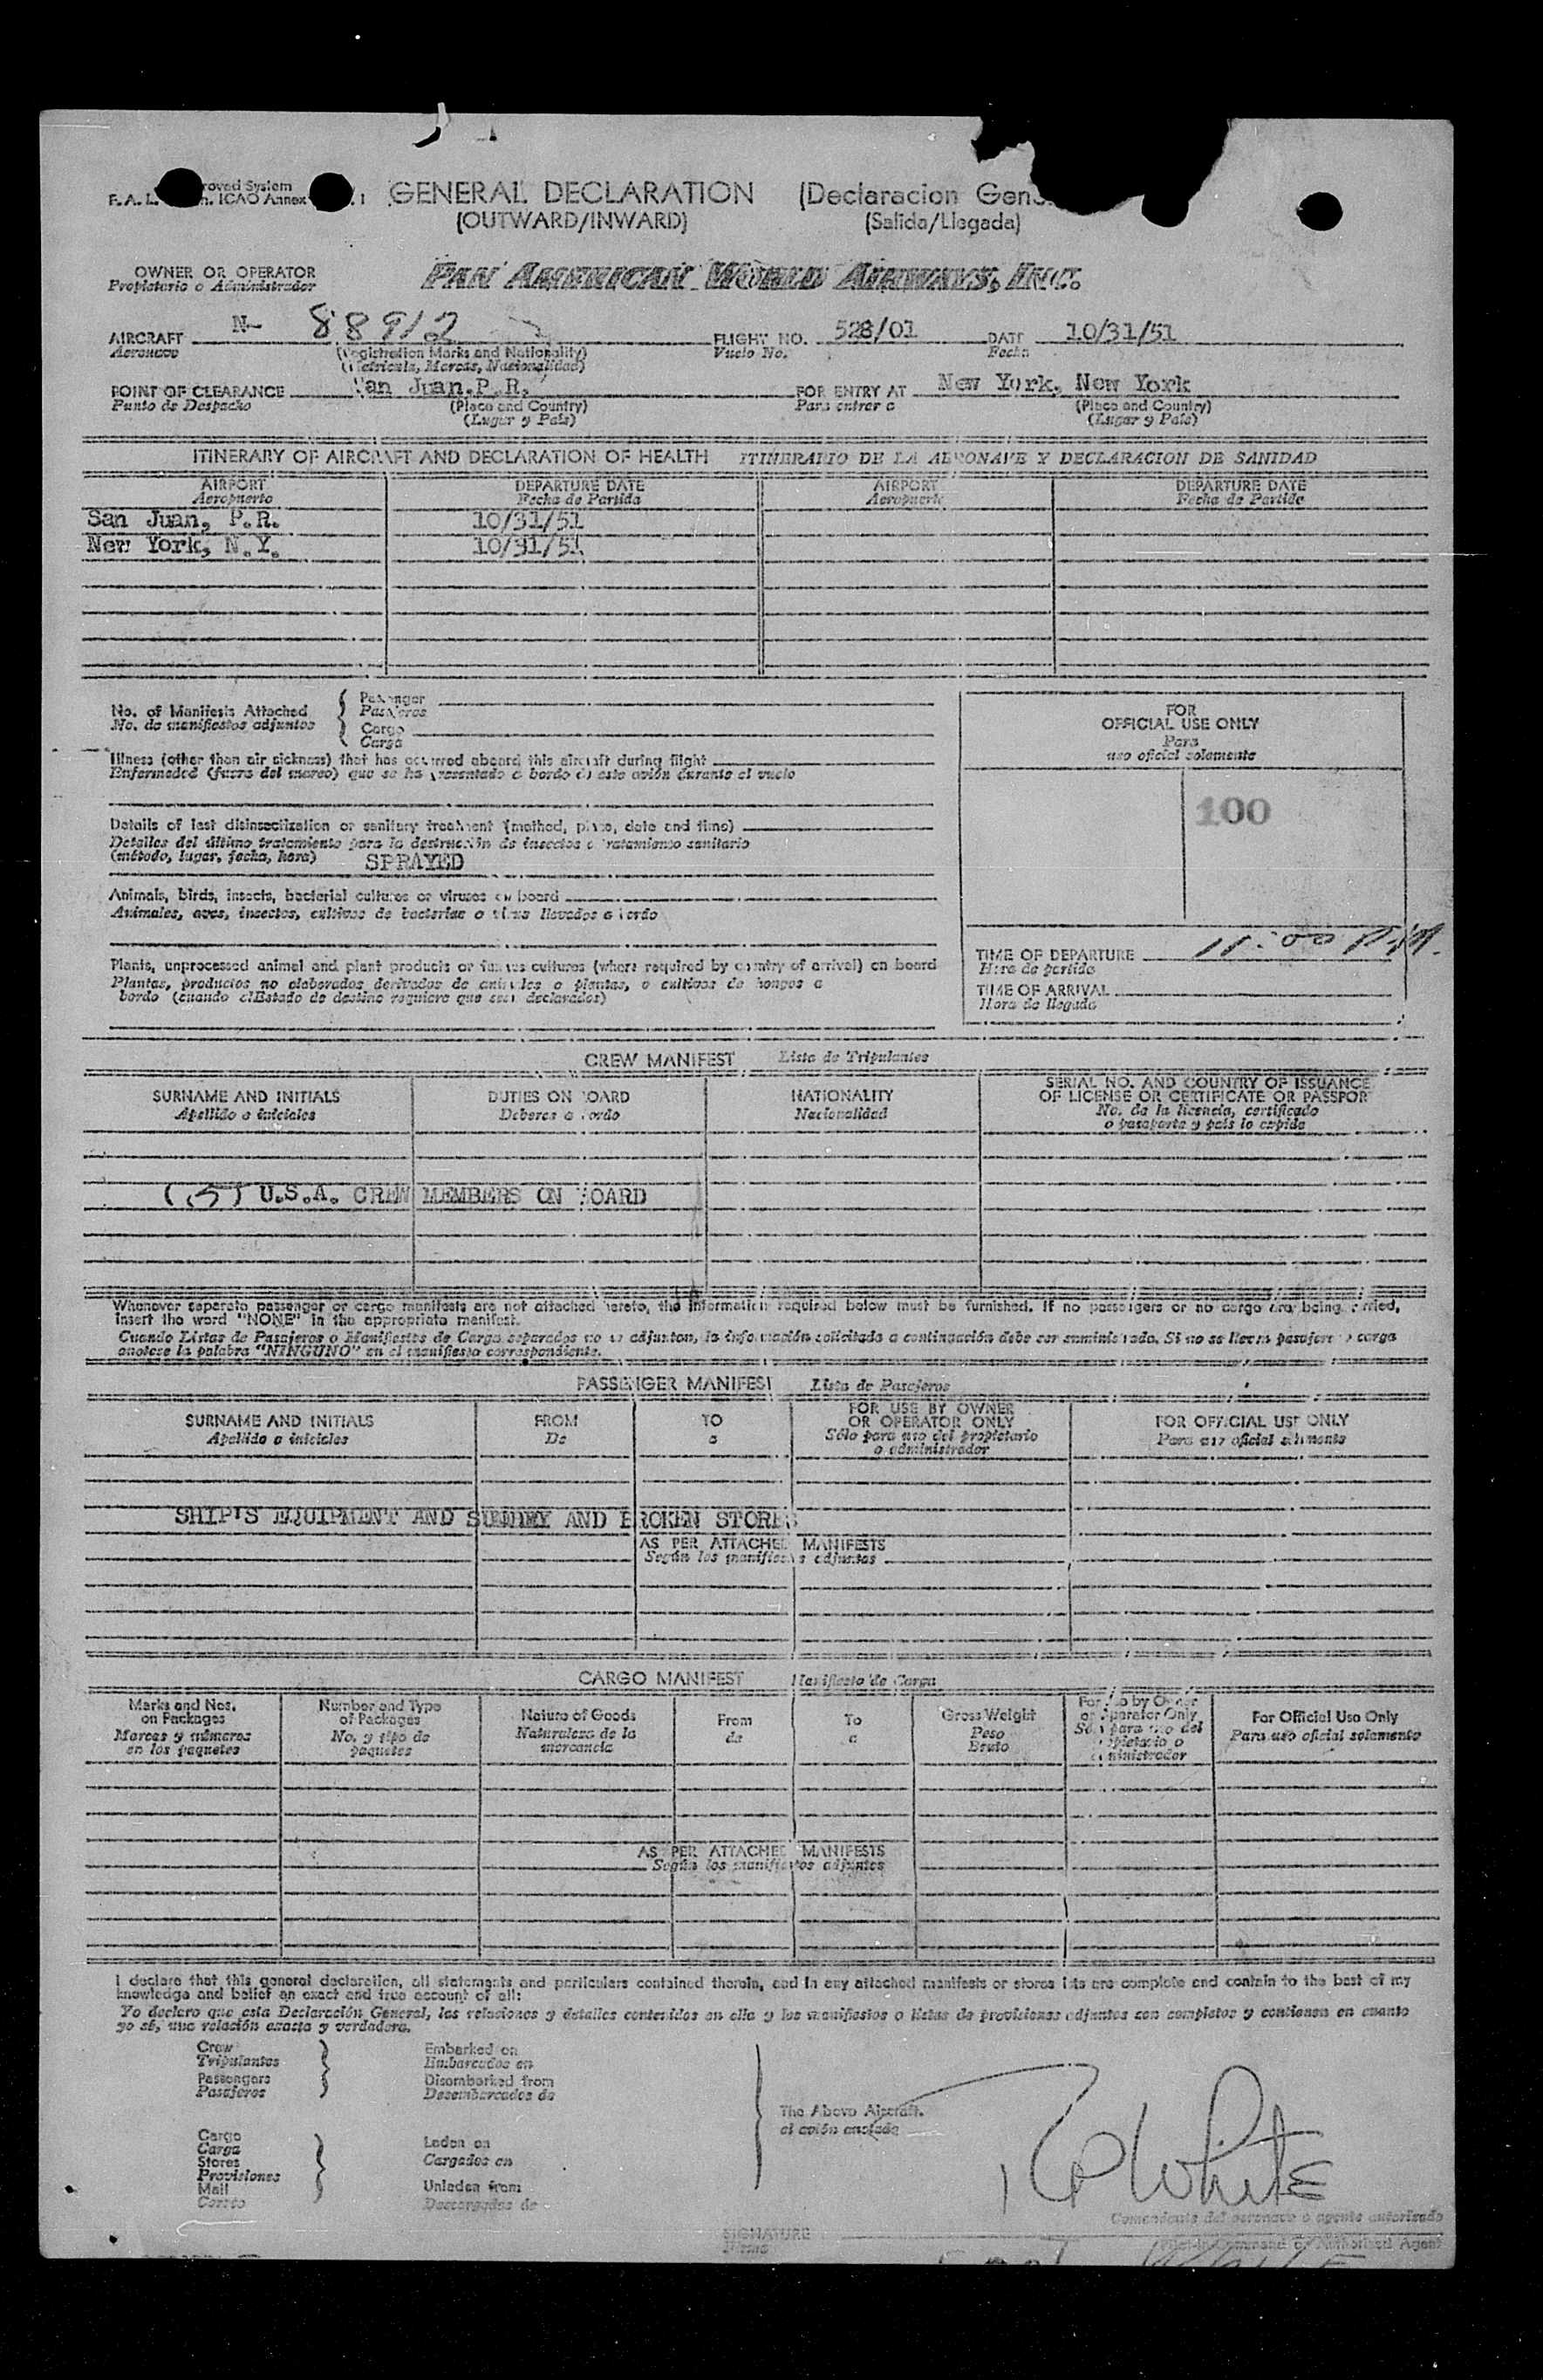 roved System
F. A. L. ICAO Annex
GENERAL DECLARATION (Declaracion Gen
(OUTWARD/INWARD) (Salida/Llegada)
OWNER OR OPERATOR PAN AMERICAN WORLD AIRWAYS, INC.
Propietario o Administrador
AIRCRAFT N- 88912 FLIGHT NO. 528/01 DATE 10/31/51
Aeronave (Registration Marks and Nationality) Vuelo No. Fecha
(Matricula, Marcas, Nacionalidad)
POINT OF CLEARANCE San Juan.P.R. FOR ENTRY AT New York, New York
Punto de Despacho (Place and Country) Para entrar a (Place and Country)
(Lugar y País) (Lugar y País)
ITINERARY OF AIRCRAFT AND DECLARATION OF HEALTH ITINERARIO DE LA AERONAVE Y DECLARACION DE SANIDAD
AIRPORT DEPARTURE DATE AIRPORT DEPARTURE DATE
Aeropuerto Fecha de Partida Aeropuerto Fecha de Partida
San Juan, P.R. 10/31/51
New York, N.Y. 10/31/51
No. of Manifests Attached
No. de manifiestos adjuntos
Passenger
Pasajeros
Cargo
Carga
Illness (other than air sickness) that has occurred aboard this aircraft during flight
Enfermedad (fuera del mareo) que se ha presentado a bordo de este avión durante el vuelo
Details of last disinsectization or sanitary treatment (method, place, date and time)
Detalles del último tratamiento para la destrucción de insectos o tratamiento sanitario
(método, lugar, fecha, hora) SPRAYED
Animals, birds, insects, bacterial cultures or viruses on board
Animales, aves, insectos, cultivos de bacterias o virus llevados a bordo
Plants, unprocessed animal and plant products or fungus cultures (where required by country of arrival) on board
Plantas, productos no elaborados derivados de animales o plantas, o cultivos de hongos a
bordo (cuando el Estado de destino requiere que sean declarados)
FOR
OFFICIAL USE ONLY
Para
uso oficial solamente
100
TIME OF DEPARTURE 11:00 P.M.
Hora de partida
TIME OF ARRIVAL
Hora de llegada
CREW MANIFEST Lista de Tripulantes
SURNAME AND INITIALS DUTIES ON BOARD NATIONALITY SERIAL NO. AND COUNTRY OF ISSUANCE
OF LICENSE OR CERTIFICATE OR PASSPOR
Apellido o iniciales Deberes a bordo Nacionalidad No. de la licencia, certificado
o pasaporte y país lo expide
(5) U.S.A. CREW MEMBERS ON BOARD
Whenever separate passenger or cargo manifests are not attached hereto, the information required below must be furnished. If no passengers or no cargo are being carried,
insert the word "NONE" in the appropriate manifest.
Cuando Listas de Pasajeros o Manifiestos de Carga separados no se adjuntan, la información solicitada a continuación debe ser suministrada. Si no se llevan pasajeros o carga
anotese la palabra "NINGUNO" en el manifiesto correspondiente.
PASSENGER MANIFEST Lista de Pasajeros
SURNAME AND INITIALS FROM TO FOR USE BY OWNER
OR OPERATOR ONLY FOR OFFICIAL USE ONLY
Apellido o iniciales De a Sólo para uso del propietario
o administrador Para uso oficial solamente
SHIP'S EQUIPMENT AND SUNDRY AND BROKEN STORES
AS PER ATTACHED MANIFESTS
Según los manifiestos adjuntos
CARGO MANIFEST Manifiesto de Carga
Marks and Nos.
on Packages
Marcas y números
en los paquetes
Number and Type
of Packages
No. y tipo de
paquetes
Nature of Goods
Naturaleza de la
mercancía
From
de
To
a
Gross Weight
Peso
Bruto
For Use by Owner
or Operator Only
Sólo para uso del
propietario o
administrador
For Official Use Only
Para uso oficial solamente
AS PER ATTACHED MANIFESTS
Según los manifiestos adjuntos
I declare that this general declaration, all statements and particulars contained therein, and in any attached manifests or stores lists are complete and contain to the best of my
knowledge and belief an exact and true account of all:
Yo declaro que esta Declaración General, las relaciones y detalles contenidos en ella y los manifiestos o listas de provisiones adjuntos son completos y contienen en cuanto
yo sé, una relación exacta y verdadera.
Crew
Tripulantes
Passengers
Pasajeros
Embarked on
Embarcados en
Disembarked from
Desembarcados de
Cargo
Carga
Stores
Provisiones
Mail
Correo
Laden on
Cargados en
Unladen from
Descargados de
The Above Aircraft.
el avión anotado
White
Comandante del aeronave o agente autorizado
SIGNATURE
Firma
Pilot-in-Command or Authorized Agent